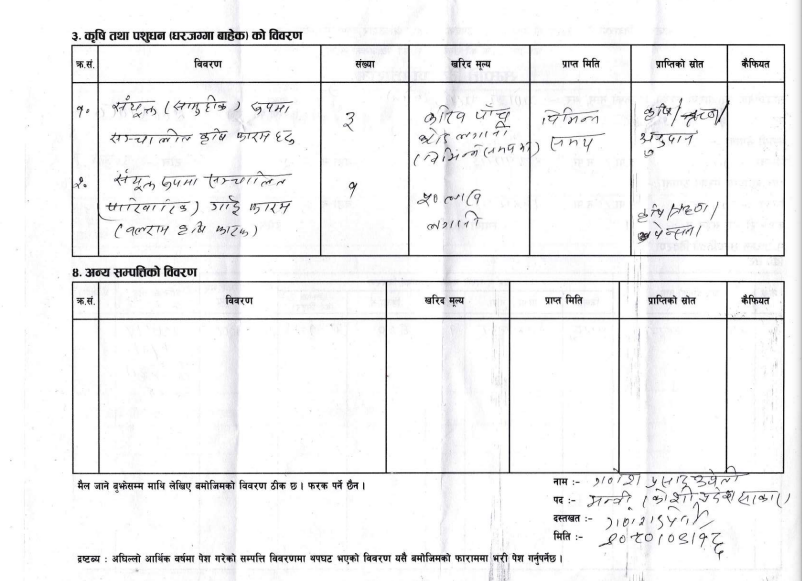 ३. कृषि तथा पशुधन (घरजग्गा बाहेक) को विवरण
क्र.सं. विवरण संख्या खरिद मूल्य प्राप्त मिति प्राप्तिको स्रोत कैफियत
१. संयुक्त (सामुहिक) रुपमा ३ करिब पाँच विभिन्न कृषि/ऋण/
सञ्चालित कृषि फारम हरु करोड लगानी समय अनुदान
(विभिन्न समयमा)
२. संयुक्त रुपमा सञ्चालित १ २० लाख कृषि/ऋण/
(पारिवारिक) गाई फारम लगानी पेन्सन
(बलराम कृषि फारम)
४. अन्य सम्पत्तिको विवरण
क्र.सं. विवरण खरिद मूल्य प्राप्त मिति प्राप्तिको स्रोत कैफियत
मैल जाने बुझेसम्म माथि लेखिए बमोजिमको विवरण ठीक छ । फरक पर्ने छैन ।
नाम :- गणेश प्रसाद उप्रेती
पद :- मन्त्री (कोशी प्रदेश सरकार)
दस्तखत :-
मिति :- २०८०।०६।१८
द्रष्टव्य : अघिल्लो आर्थिक वर्षमा पेश गरेको सम्पत्ति विवरणमा थपघट भएको विवरण यसै बमोजिमको फाराममा भरी पेश गर्नुपर्नेछ ।